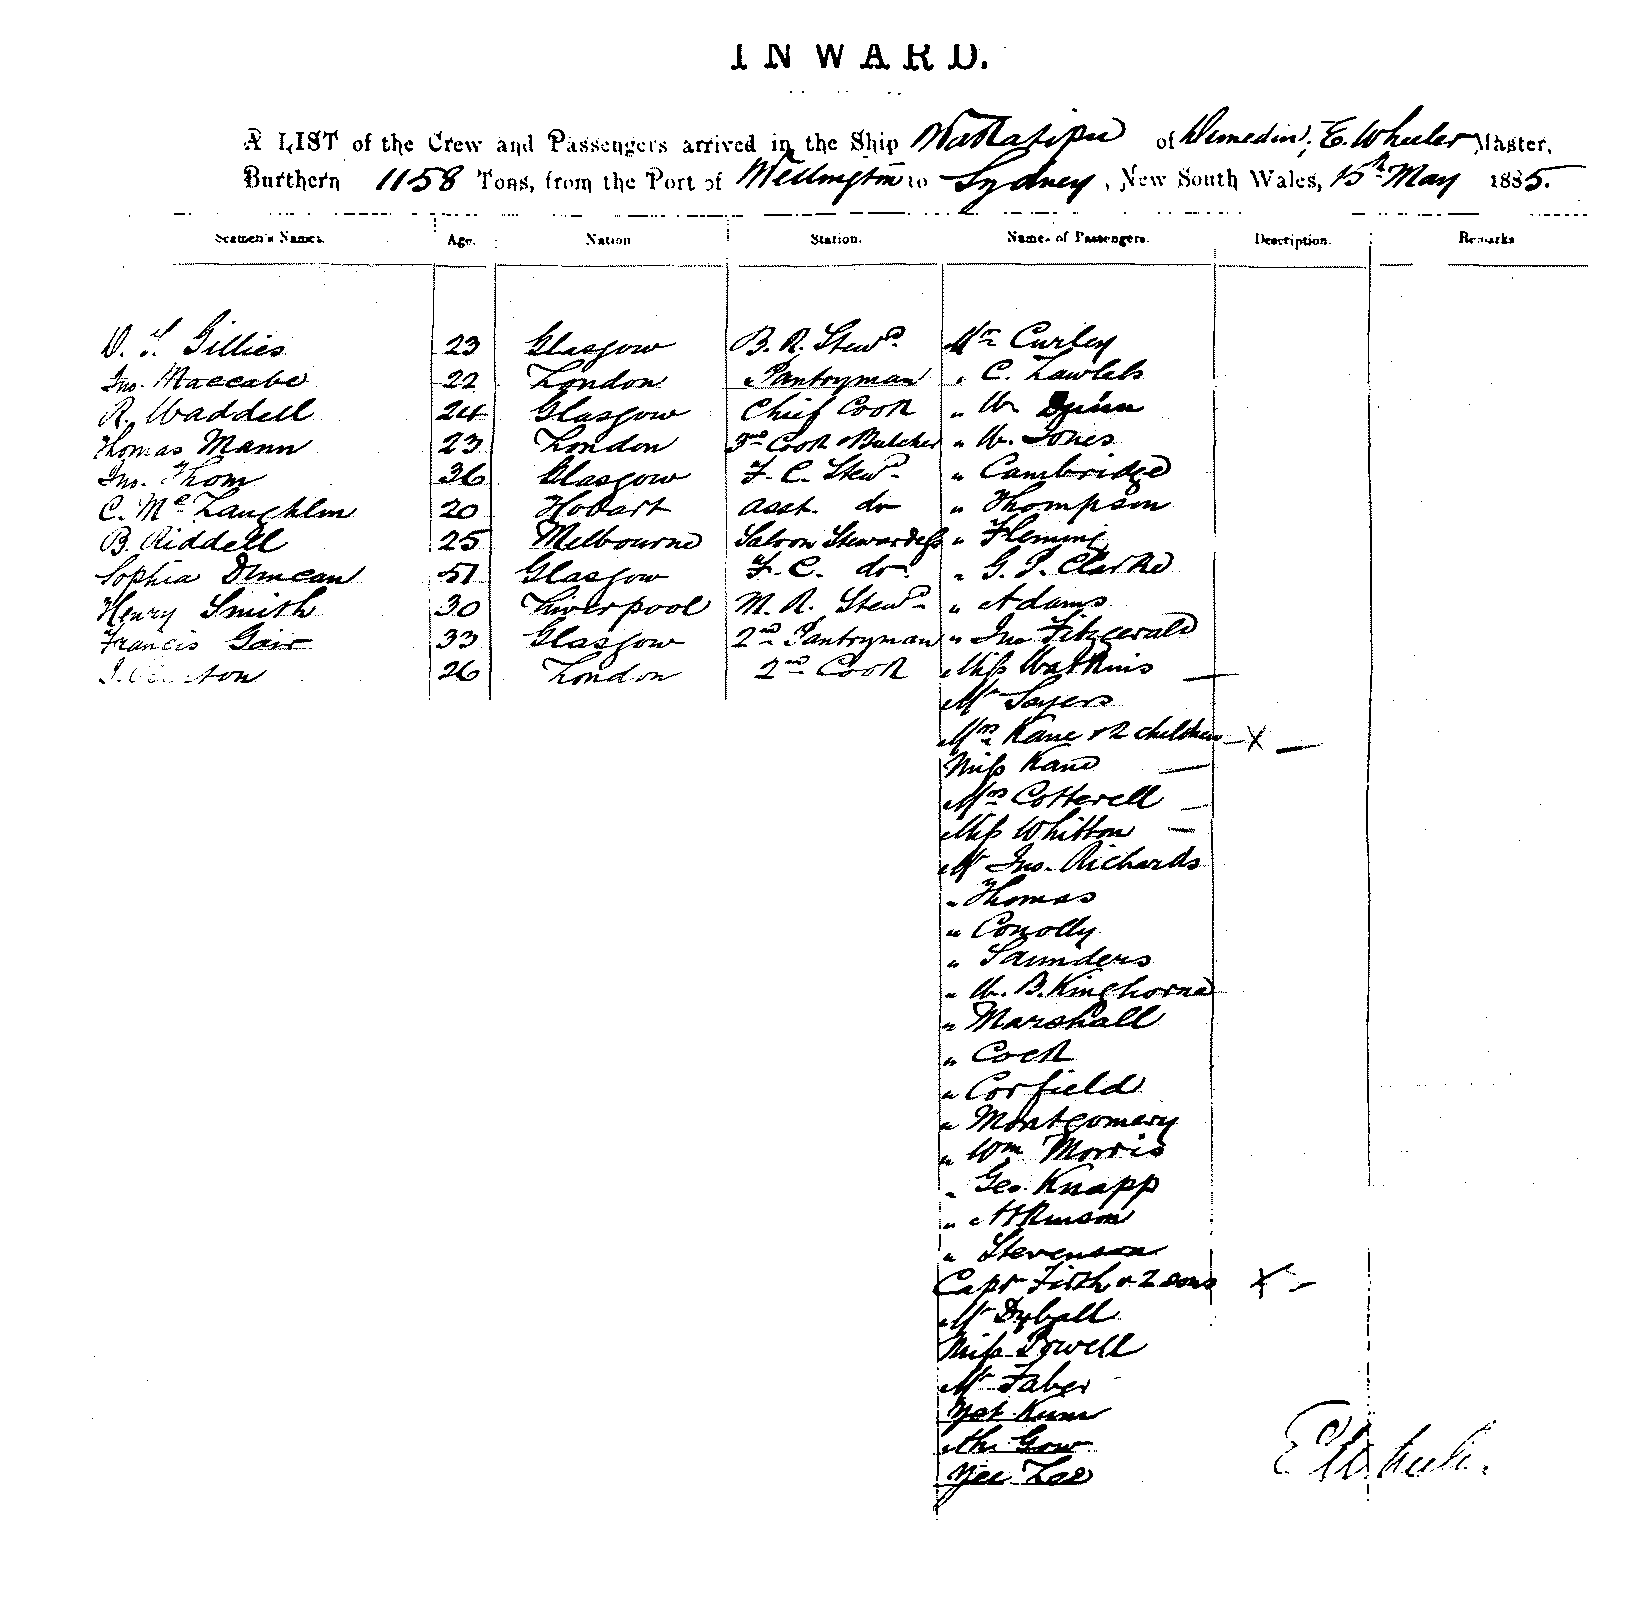 INWARD.
A LIST of the Crew and Passengers arrived in the Ship Wakatipu of Dunedin, E. Wheeler Master,
Burthern 1158 Tons, from the Port of Wellington to Sydney, New South Wales, 15th May 1885.
Seamen's Names. Age. Nation Station. Names of Passengers. Description. Remarks
D. T. Gillies 23 Glasgow B. R. Stewd. Mr Curley
Jno. Maccabe 22 London Pantryman " C. Lawless
R. Waddell 24 Glasgow Chief Cook " W. Dunn
Thomas Mann 23 London 3rd Cook & Butcher " W. Jones
Jno. Thom 36 Glasgow F. C. Stewd. " Cambridge
C. McLaughlin 20 Hobart asst. do " Thompson
B. Riddell 25 Melbourne Saloon Stewardess " Fleming
Sophia Duncan 51 Glasgow F. C. do. " G. P. Clarke
Henry Smith 30 Liverpool M. R. Stewd. " Adams
Francis Gair 33 Glasgow 2nd Pantryman " Jno Fitzgerald
26 London 2nd Cook Miss Watkins —
Mr Sayers
Mrs Kane & 2 children — X —
Miss Kane —
Mrs Cotterell —
Miss Whitton —
Mr Jno. Richards
" Thomas
" Conolly
" Saunders
" W. B. Kinghorne
" Marshall
" Cock
" Corfield
" Montgomery
" Wm Morris
" Geo. Knapp
" Atkinson
" Stevenson
Capt Firth & 2 sons X —
Mr Dyball
Miss Powell
Mr Faber
Yot Kum
Ah Gow
Yee Lee
E Wheeler.